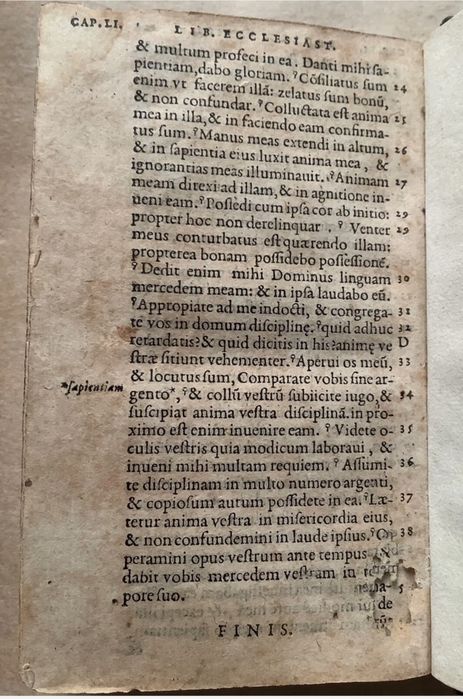 CAP. LI.
LIB. ECCLESIAST.
& multum profeci in ea. Danti mihi sa-
pientiam, dabo gloriam. ꝰCōsiliatus sum 24
enim vt facerem illā: zelatus sum bonū,
& non confundar. ꝰColluctata est anima 25
mea in illa, & in faciendo eam confirma-
tus sum. ꝰManus meas extendi in altum, 26
& in sapientia eius luxit anima mea, &
ignorantias meas illuminauit. ꝰAnimam 27
meam direxi ad illam, & in agnitione in-
ueni eam. ꝰPossedi cum ipsa cor ab initio: 29
propter hoc non derelinquar. ꝰ Venter 29
meus conturbatus est quærendo illam:
propterea bonam possidebo possessionē.
ꝰDedit enim mihi Dominus linguam 30
mercedem meam: & in ipsa laudabo eū.
ꝰAppropiate ad me indocti, & congrega- 31
te vos in domum disciplinę. ꝰquid adhuc 32
retardatis? & quid dicitis in his? animę ve D
stræ sitiunt vehementer. ꝰAperui os meū, 33
& locutus sum, Comparate vobis sine ar-
*sapientiam
gento*, ꝰ& collū vestrū subiicite iugo, & 34
suscipiat anima vestra disciplinā. in pro-
ximo est enim inuenire eam. ꝰ Videte o- 35
culis vestris quia modicum laboraui, &
inueni mihi multam requiem. ꝰ Assumi- 36
te disciplinam in multo numero argenti,
& copiosum aurum possidete in ea. ꝰLæ- 37
tetur anima vestra in misericordia eius,
& non confundemini in laude ipsius. ꝰOp 38
peramini opus vestrum ante tempus, &
dabit vobis mercedem vestram in tem
pore suo.
de
FINIS.